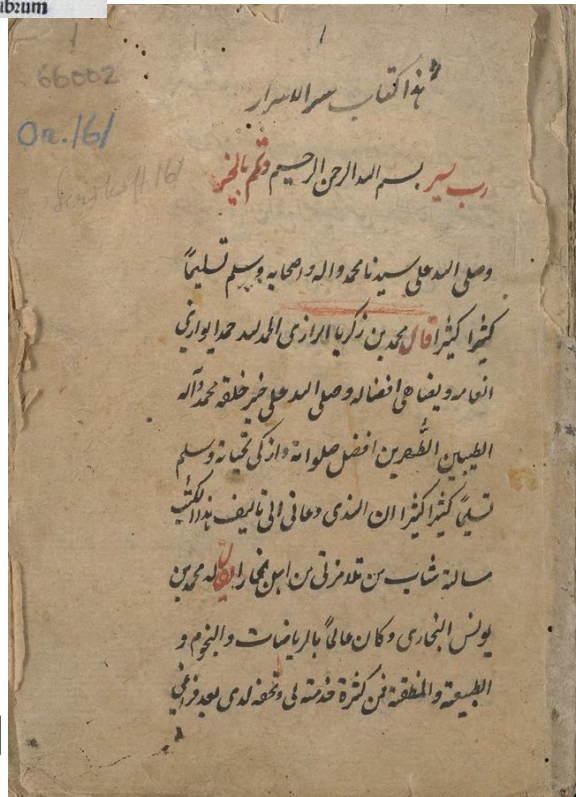 ibrum
1
66002
Or. 161
هذا كتاب سر الاسرار
رب يسر بسم الله الرحمن الرحيم وتمم بالخير
وصلى الله على سيدنا محمد واله واصحابه وسلم تسليمًا
كثيرا كثيرا قال محمد بن زكريا الرازى الحمد لله حمدا يوازي
انعامه ويضاهى افضاله وصلى الله على خير خلقه محمد وآله
الطيبين الطهرين افضل صلواته وازكى تحياته وسلم
تسليمًا كثيرا كثيرا ان الذى دعانى الى تاليف هذا الكتاب
سالة شاب من تلامزتى من اهل بخارا يقال له محمد بن
يونس البخارى وكان عالمًا بالرياضات والنجوم و
الطبيعة والمنطقة فمن كثرة خدمته لى وتحفه لدى بعد فراغي